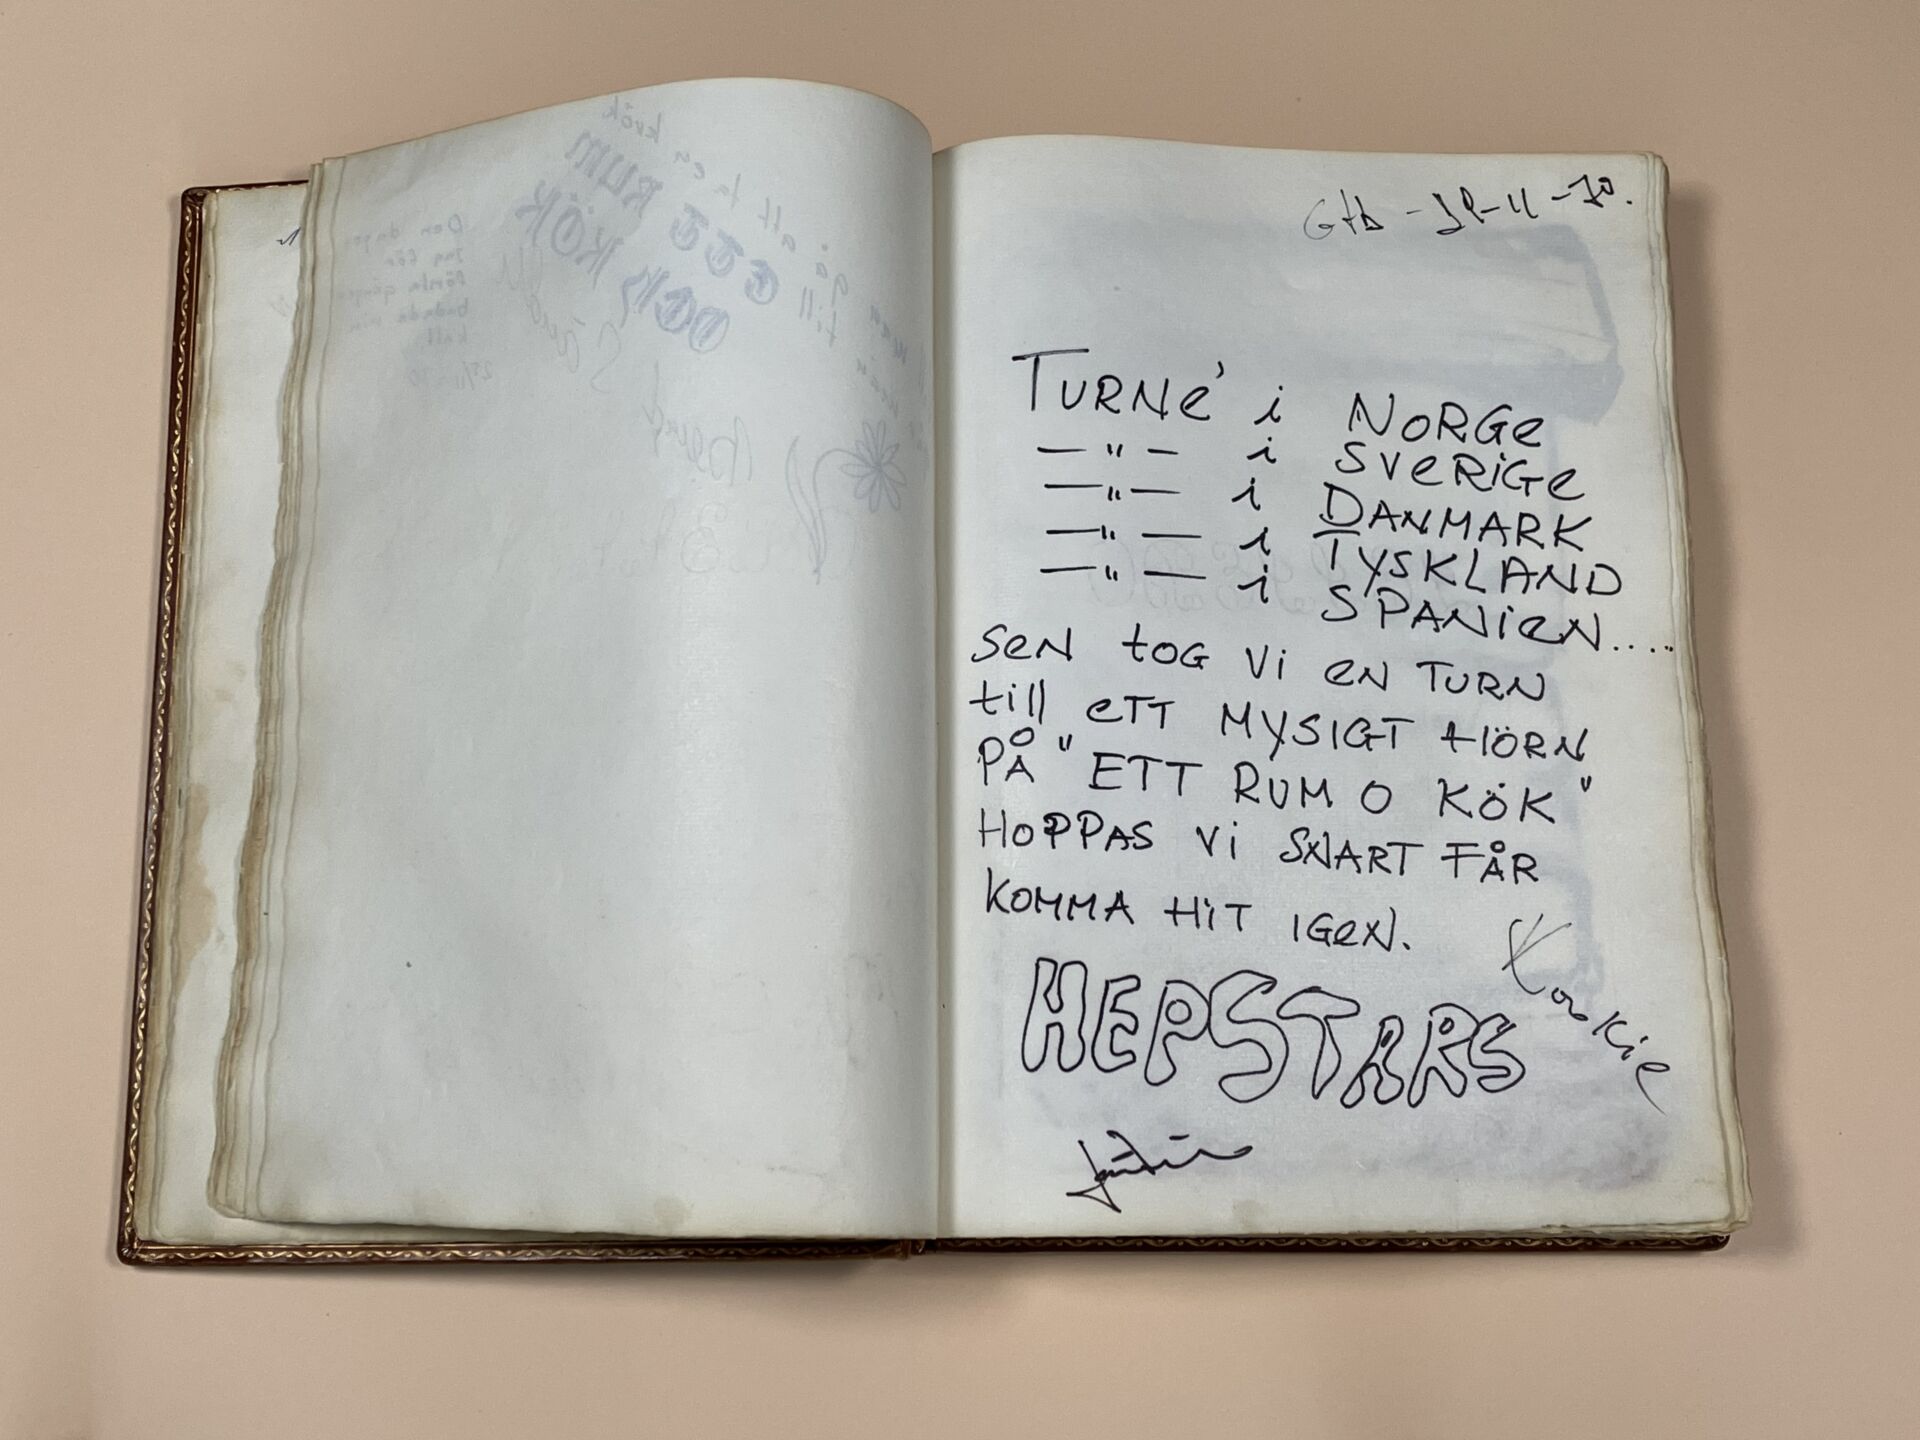 Gtb - 29-11-70.
TURNé i NORGe
— " — i SVERiGe
— " — i DANMARK
— " — i TYSKLAND
— " — i SPANieN.....
SeN tOG Vi eN TURN
till eTT MYSIGT HÖRN
PÅ "ETT RUM O KÖK"
HOPPAS Vi SNART FÅR
KOMMA HiT IGeN.
HEPSTARS